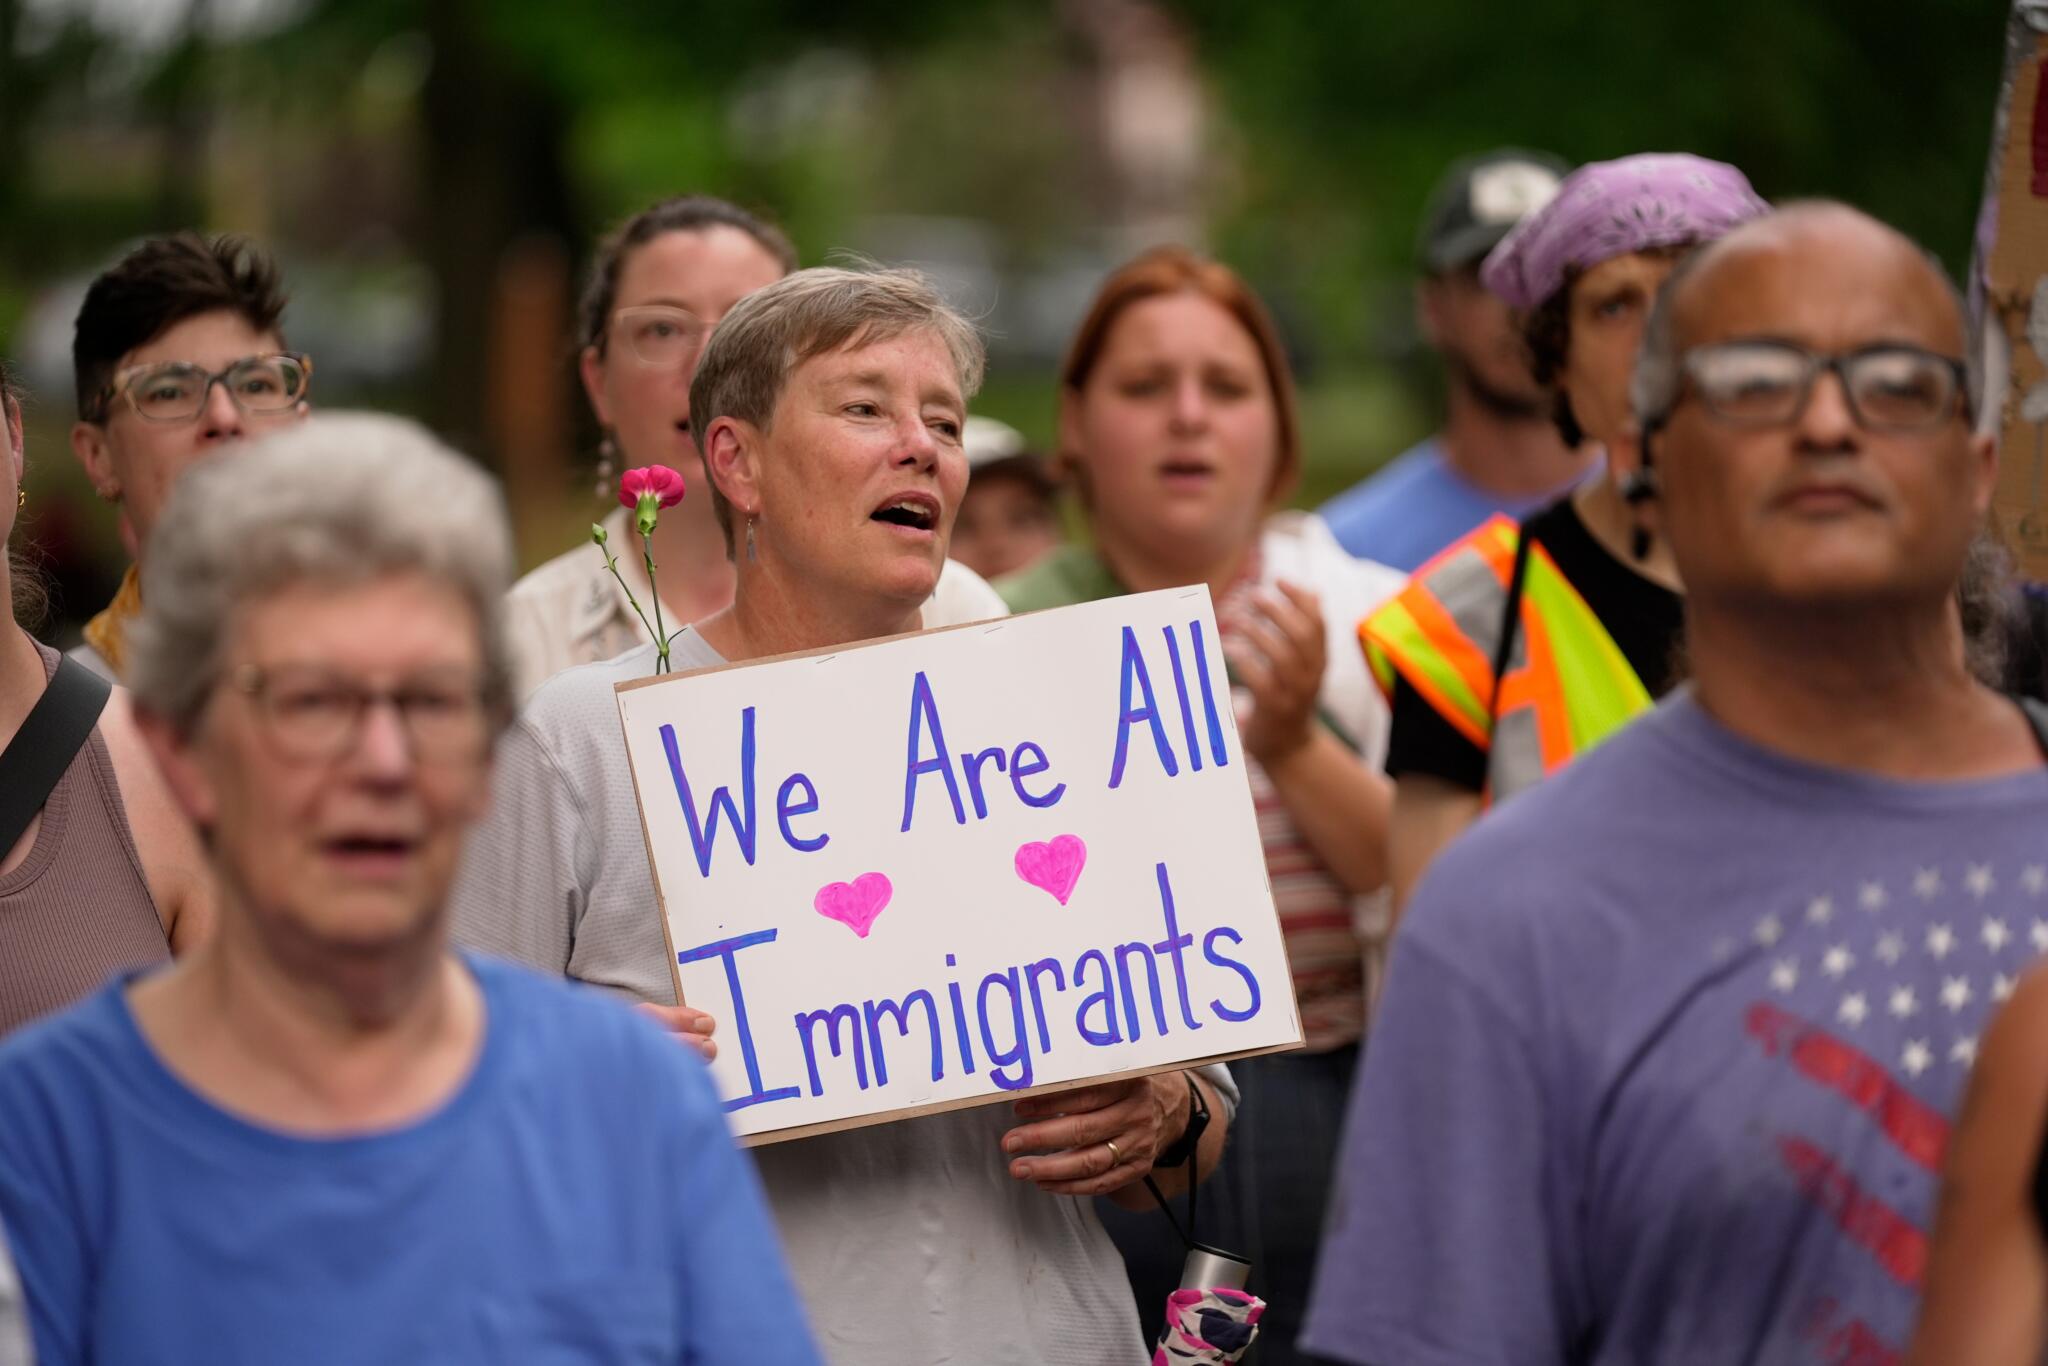 We Are All
Immigrants